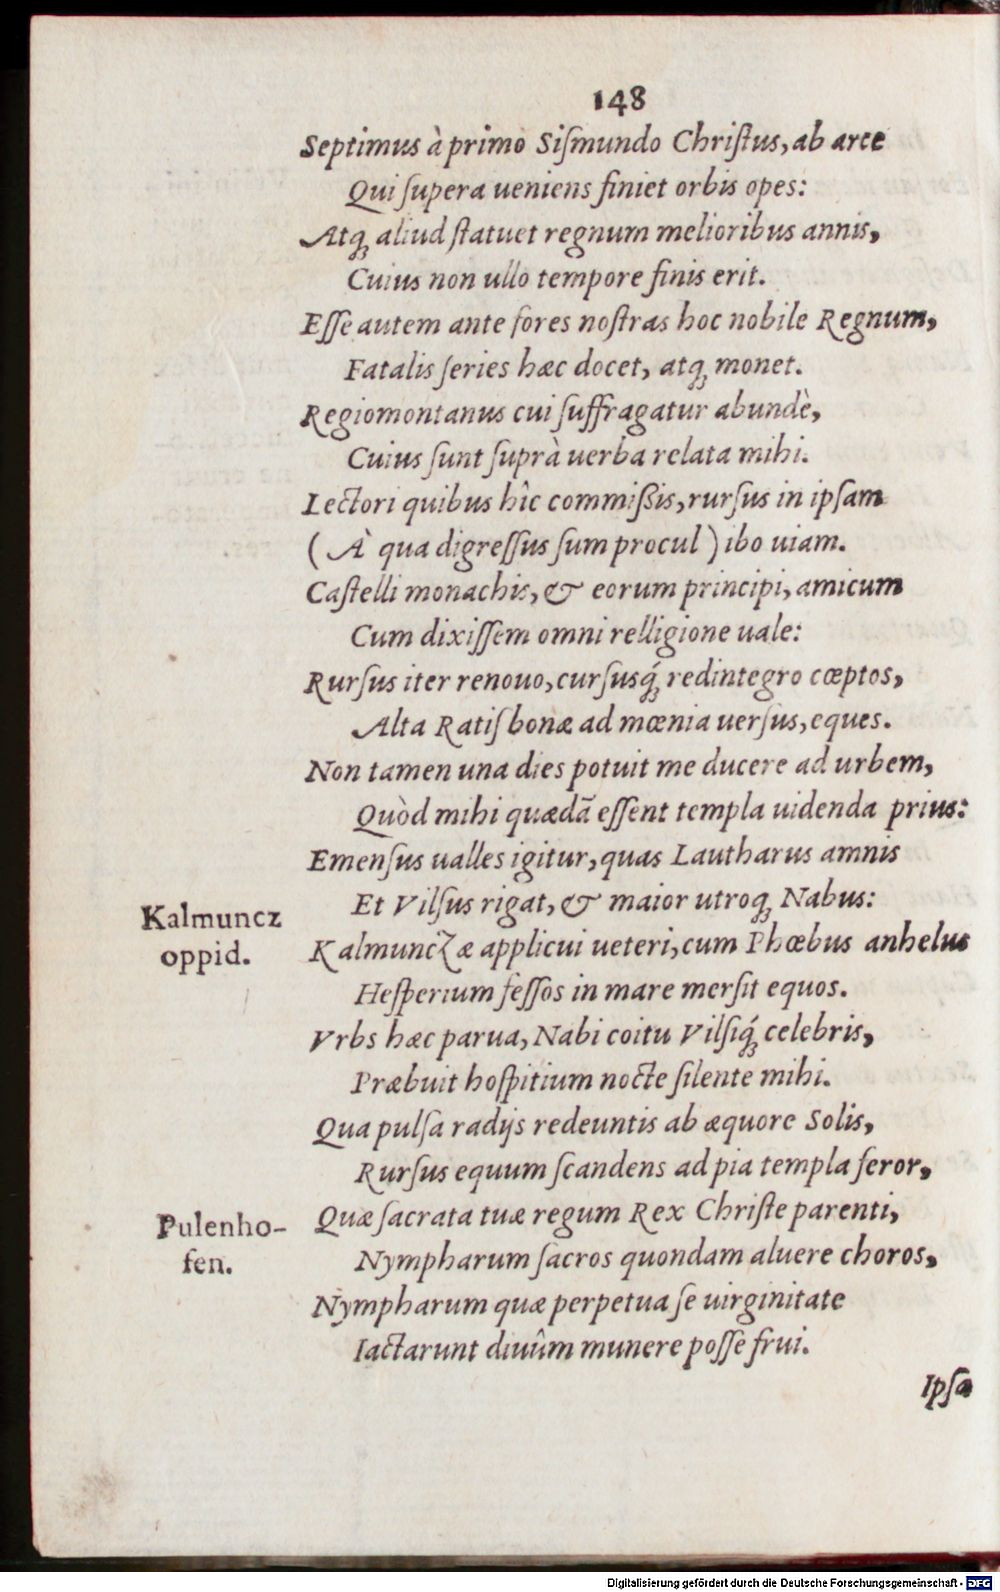 148
Septimus à primo Siſmundo Chriſtus, ab arce
Qui ſupera ueniens finiet orbis opes:
Atq́; aliud ſtatuet regnum melioribus annis,
Cuius non ullo tempore finis erit.
Eſſe autem ante fores noſtras hoc nobile Regnum,
Fatalis ſeries hæc docet, atq; monet.
Regiomontanus cui ſuffragatur abundè,
Cuius ſunt ſuprà uerba relata mihi.
Lectori quibus hîc commißis, rurſus in ipſam
(À qua digreſſus ſum procul) ibo uiam.
Caſtelli monachis, & eorum principi, amicum
Cum dixiſſem omni relligione uale:
Rurſus iter renouo, curſusq́; redintegro cœptos,
Alta Ratiſbonæ ad mœnia uerſus, eques.
Non tamen una dies potuit me ducere ad urbem,
Quòd mihi quædã eſſent templa uidenda prius:
Emenſus ualles igitur, quas Lautharus amnis
Et Vilſus rigat, & maior utroq; Nabus:
Kalmuncz
oppid.
Kalmunczæ applicui ueteri, cum Phœbus anhelus
Heſperium feſſos in mare merſit equos.
Vrbs hæc parua, Nabi coitu Vilſiq́; celebris,
Præbuit hoſpitium nocte ſilente mihi.
Qua pulſa radijs redeuntis ab æquore Solis,
Rurſus equum ſcandens ad pia templa feror,
Pulenho-
fen.
Quæ ſacrata tuæ regum Rex Chriſte parenti,
Nympharum ſacros quondam aluere choros,
Nympharum quæ perpetua ſe uirginitate
Iactarunt diuûm munere poſſe frui.
Ipſa
Digitalisierung gefördert durch die Deutsche Forschungsgemeinschaft - DFG